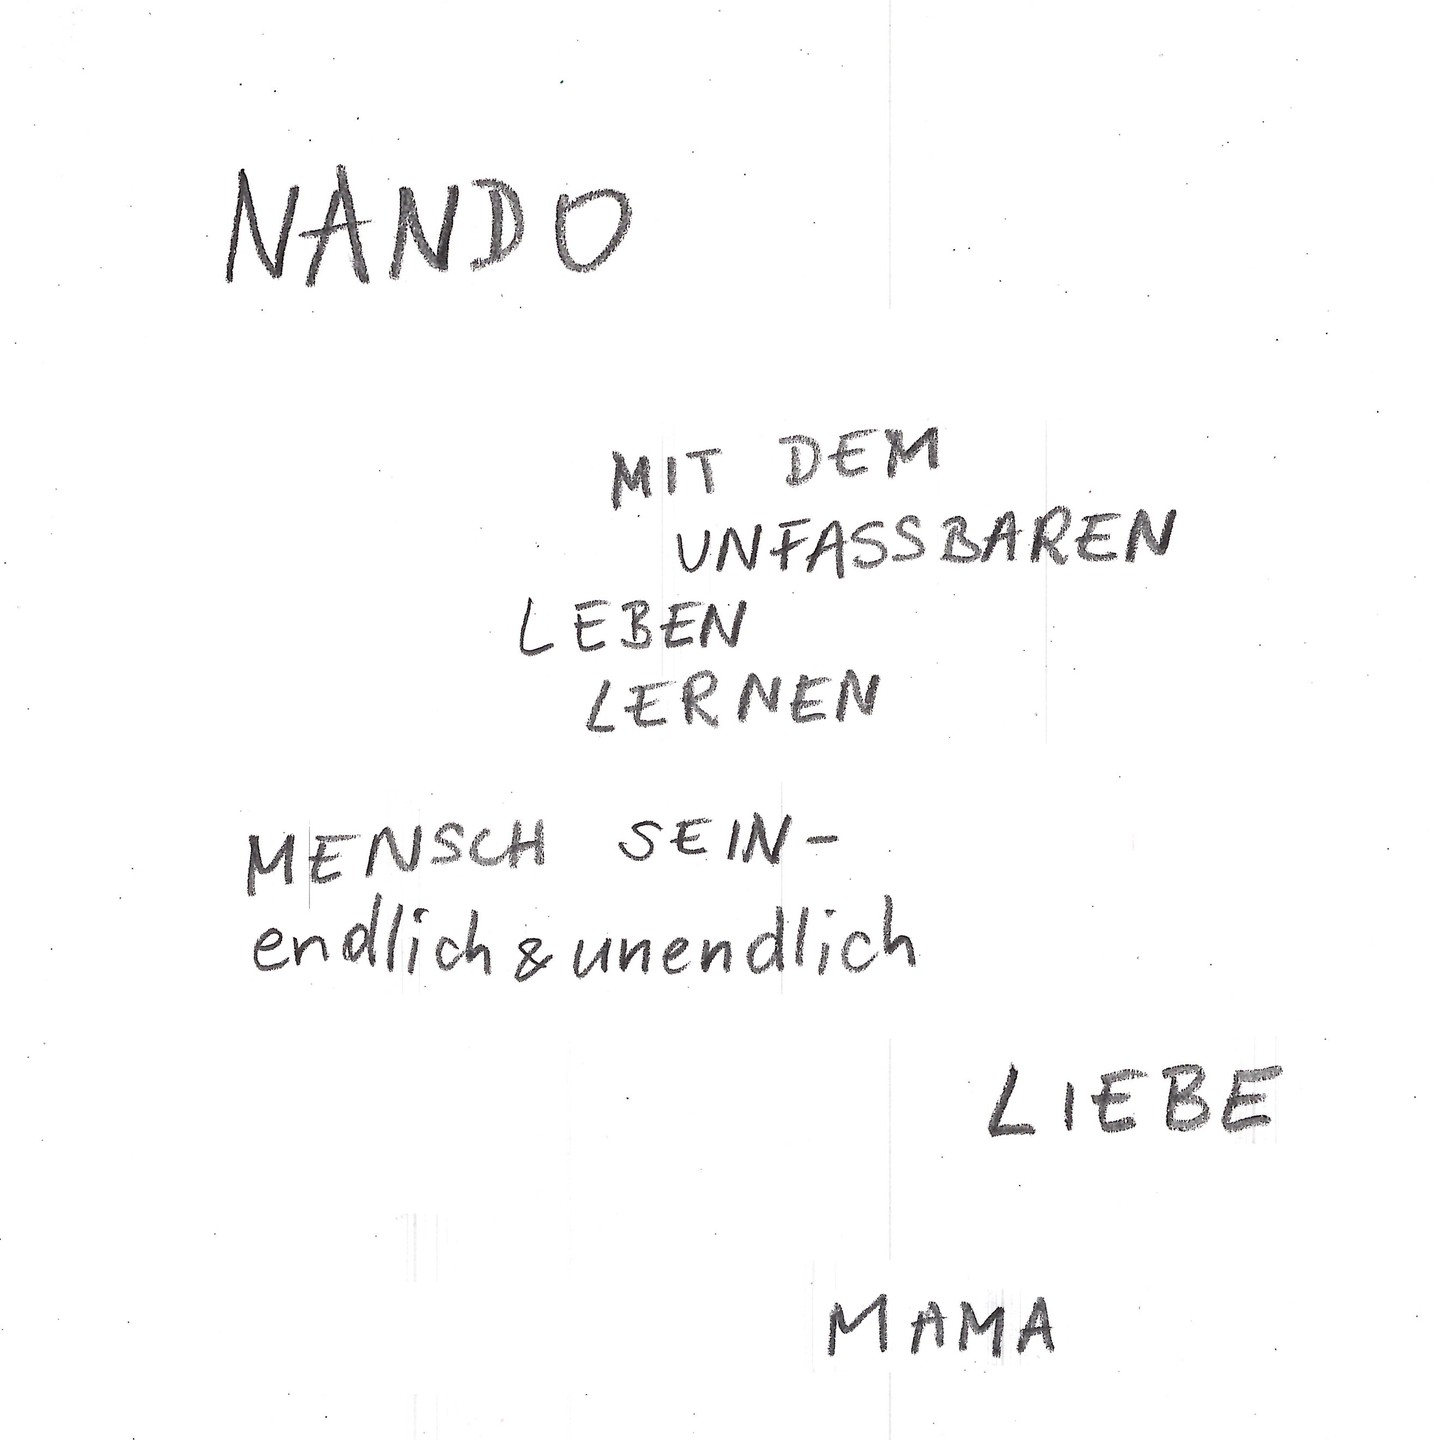 NANDO
MIT DEM
UNFASSBAREN
LEBEN
LERNEN
MENSCH SEIN-
endlich & unendlich
LIEBE
MAMA